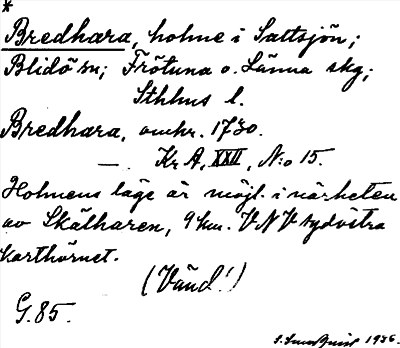 *
Bredhara, holme i Saltsjön;
Blidö sn; Frötuna o. Länna skg;
Sthlms l.
Bredhara, omkr. 1730.
—. Kr A, XXII, N:o 15.
Holmens läge är möjl. i närheten
av Skälharen, 9 km. VNV sydvästra
karthörnet.
(Vänd!)
G. 85.
1936.